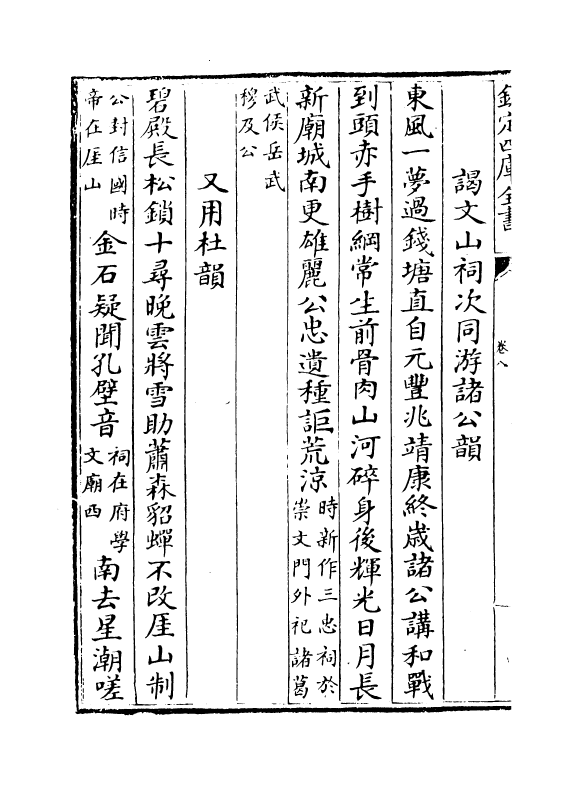 欽定四庫全書
卷八
謁文山祠次同游諸公韻
東風一夢過錢塘直自元豐兆靖康終歲諸公講和戰
到頭赤手樹綱常生前骨肉山河碎身後輝光日月長
新廟城南更雄麗公忠遺種詎荒涼時新作三忠祠於崇文門外祀諸葛
武侯岳武穆及公
又用杜韻
碧殿長松鎖十尋晚雲將雪助蕭森貂蟬不改厓山制
公封信國時帝在厓山金石疑聞孔壁音祠在府學文廟西南去星潮嗟